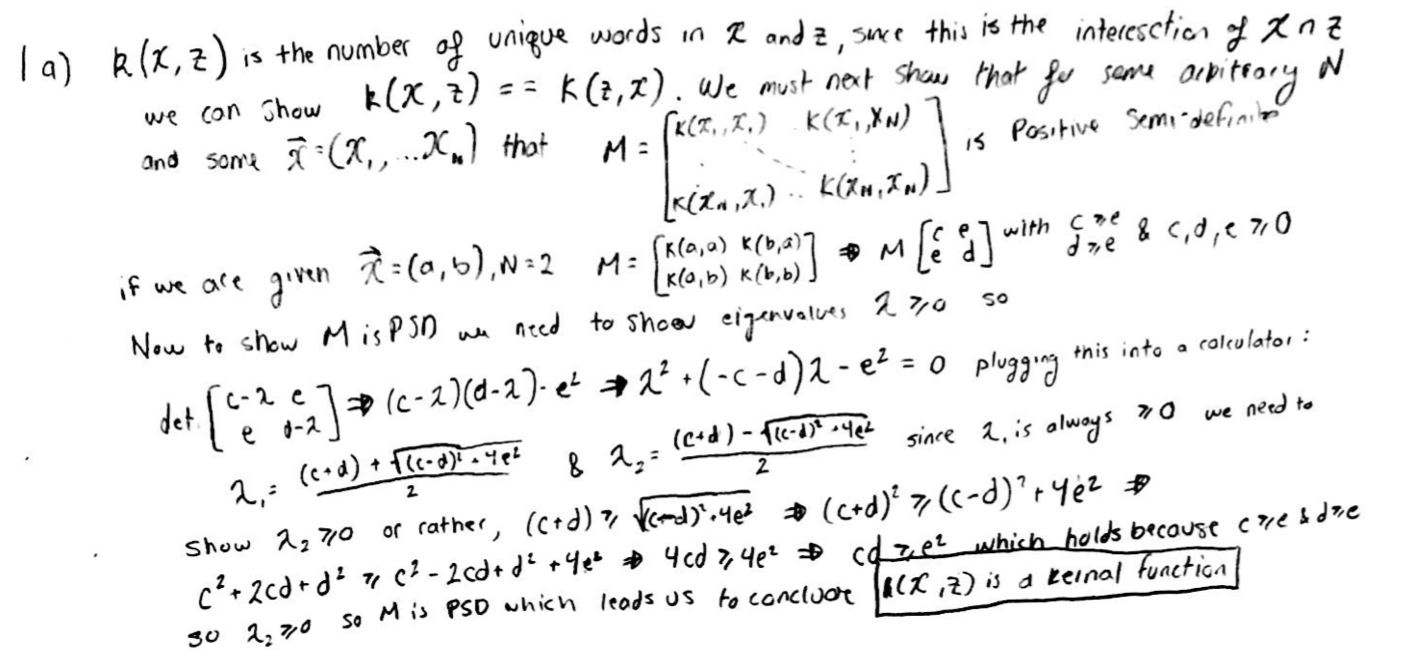 1a) k(x,z) is the number of unique words in x and z, since this is the interesction of x ∩ z
we can show k(x,z) == k(z,x). We must next show that for some arbitrary N
and some x⃗ = (x₁, ... xₙ) that M = [k(x₁,x₁) ... k(x₁,x_N) ; k(x_N,x₁) .. k(x_N,x_N)] is Positive Semi-definite
if we are given x⃗ = (a,b), N=2 M = [k(a,a) k(b,a) ; k(a,b) k(b,b)] ⇒ M [c e ; e d] with c≥e d≥e & c,d,e ≥ 0
Now to show M is PSD we need to show eigenvalues λ ≥ 0 so
det. [c-λ e ; e d-λ] ⇒ (c-λ)(d-λ)-e² ⇒ λ² + (-c-d)λ - e² = 0 plugging this into a calculator:
λ₁ = ((c+d) + √((c-d)² + 4e²))/2 & λ₂ = ((c+d) - √((c-d)² + 4e²))/2 since λ, is always ≥0 we need to
show λ₂ ≥ 0 or rather, (c+d) ≥ √((c-d)² + 4e²) ⇒ (c+d)² ≥ (c-d)² + 4e² ⇒
c² + 2cd + d² ≥ c² - 2cd + d² + 4e² ⇒ 4cd ≥ 4e² ⇒ cd ≥ e² which holds because c≥e & d≥e
so λ₂ ≥ 0 so M is PSD which leads us to conclude k(x,z) is a kernal function